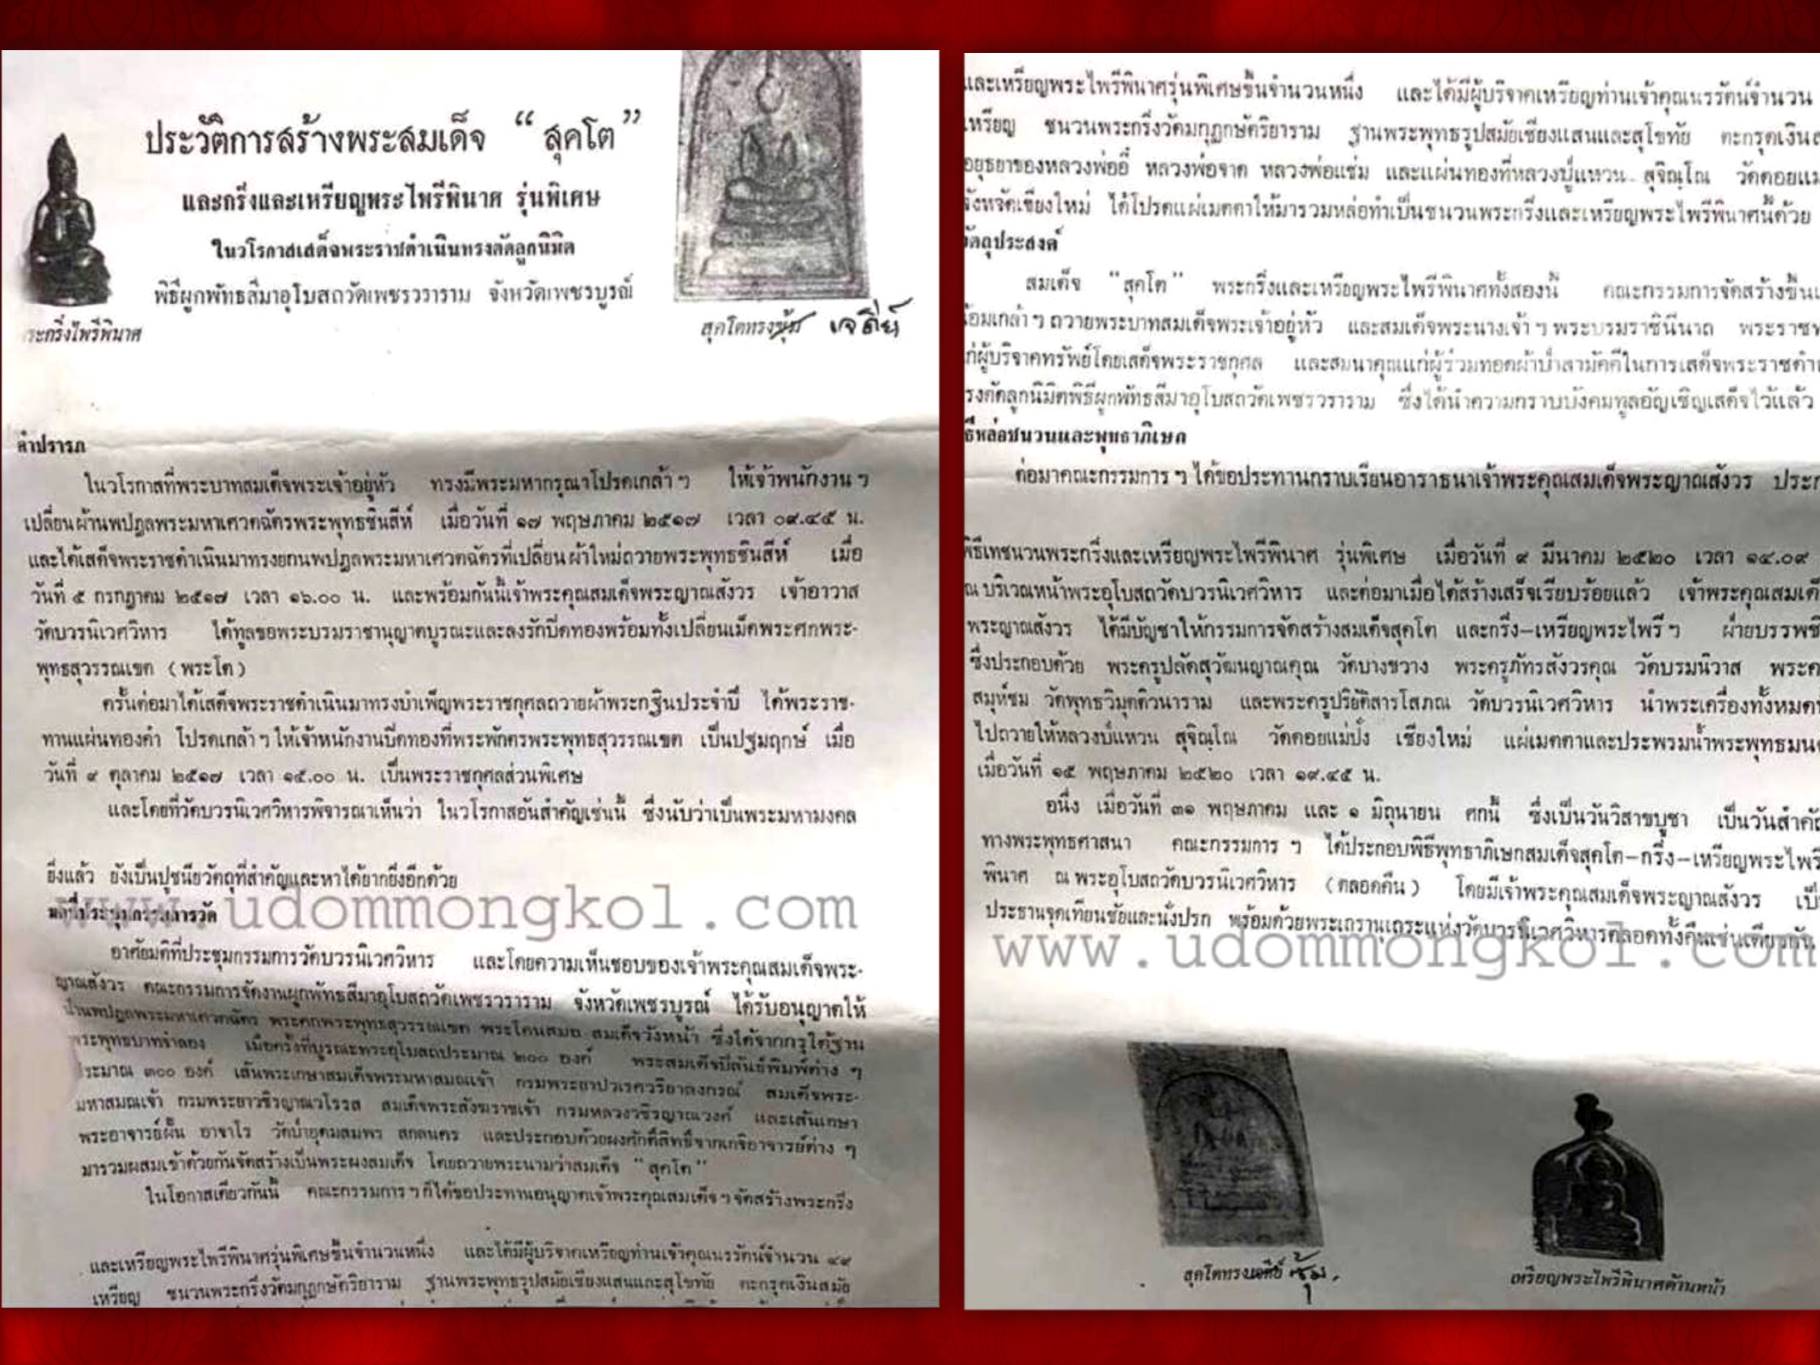 ประวัติการสร้างพระสมเด็จ “สุคโต”
และกริ่งและเหรียญพระไพรีพินาศ รุ่นพิเศษ
ในวโรกาสเสด็จพระราชดำเนินทรงตัดลูกนิมิต
พิธีผูกพัทธสีมาอุโบสถวัดเพชรวราราม จังหวัดเพชรบูรณ์
พระกริ่งไพรีพินาศ
สุคโตทรงซุ้ม เจดีย์
คำปรารภ
ในวโรกาสที่พระบาทสมเด็จพระเจ้าอยู่หัว ทรงมีพระมหากรุณาโปรดเกล้า ฯ ให้เจ้าพนักงาน ฯ
เปลี่ยนผ้านพปฎลพระมหาเศวตฉัตรพระพุทธชินสีห์ เมื่อวันที่ ๑๗ พฤษภาคม ๒๕๑๗ เวลา ๐๙.๔๕ น.
และได้เสด็จพระราชดำเนินมาทรงยกนพปฎลพระมหาเศวตฉัตรที่เปลี่ยนผ้าใหม่ถวายพระพุทธชินสีห์ เมื่อ
วันที่ ๕ กรกฎาคม ๒๕๑๗ เวลา ๑๖.๐๐ น. และพร้อมกันนี้เจ้าพระคุณสมเด็จพระญาณสังวร เจ้าอาวาส
วัดบวรนิเวศวิหาร ได้ทูลขอพระบรมราชานุญาตบูรณะและลงรักปิดทองพร้อมทั้งเปลี่ยนเม็ดพระศกพระ-
พุทธสุวรรณเขต (พระโต)
ครั้นต่อมาได้เสด็จพระราชดำเนินมาทรงบำเพ็ญพระราชกุศลถวายผ้าพระกฐินประจำปี ได้พระราช-
ทานแผ่นทองคำ โปรดเกล้า ฯ ให้เจ้าหนักงานปิดทองที่พระพักตรพระพุทธสุวรรณเขต เป็นปฐมฤกษ์ เมื่อ
วันที่ ๙ ตุลาคม ๒๕๑๗ เวลา ๑๕.๐๐ น. เป็นพระราชกุศลส่วนพิเศษ
และโดยที่วัดบวรนิเวศวิหารพิจารณาเห็นว่า ในวโรกาสอันสำคัญเช่นนี้ ซึ่งนับว่าเป็นพระมหามงคล
ยิ่งแล้ว ยังเป็นปูชนียวัตถุที่สำคัญและหาได้ยากยิ่งอีกด้วย
มติที่ประชุมกรรมการวัด
www.udommongkol.com
อาศัยมติที่ประชุมกรรมการวัดบวรนิเวศวิหาร และโดยความเห็นชอบของเจ้าพระคุณสมเด็จพระ-
ญาณสังวร คณะกรรมการจัดงานผูกพัทธสีมาอุโบสถวัดเพชรวราราม จังหวัดเพชรบูรณ์ ได้รับอนุญาตให้
ผ้านพปฎลพระมหาเศวตฉัตร พระศกพระพุทธสุวรรณเขต พระโคนสมอ สมเด็จวังหน้า ซึ่งได้จากกรุใต้ฐาน
พระพุทธบาทจำลอง เมื่อครั้งที่บูรณะพระอุโบสถประมาณ ๒๐๐ องค์ พระสมเด็จปิลันธ์พิมพ์ต่าง ๆ
ประมาณ ๓๐๐ องค์ เส้นพระเกษาสมเด็จพระมหาสมณเจ้า กรมพระยาปวเรศวริยาลงกรณ์ สมเด็จพระ-
มหาสมณเจ้า กรมพระยาวชิรญาณวโรรส สมเด็จพระสังฆราชเจ้า กรมหลวงวชิรญาณวงศ์ และเส้นเกษา
พระอาจารย์ฝั้น อาจาโร วัดป่าอุดมสมพร สกลนคร และประกอบด้วยผงศักดิ์สิทธิ์จากเกจิอาจารย์ต่าง ๆ
มารวมผสมเข้าด้วยกันจัดสร้างเป็นพระผงสมเด็จ โดยถวายพระนามว่าสมเด็จ “สุคโต”
ในโอกาสเดียวกันนี้ คณะกรรมการ ฯ ก็ได้ขอประทานอนุญาตเจ้าพระคุณสมเด็จ ฯ จัดสร้างพระกริ่ง
และเหรียญพระไพรีพินาศรุ่นพิเศษขึ้นจำนวนหนึ่ง และได้มีผู้บริจาคเหรียญท่านเจ้าคุณนรรัตน์จำนวน ๔๙
เหรียญ ชนวนพระกริ่งวัดมกุฏกษัตริยาราม ฐานพระพุทธรูปสมัยเชียงแสนและสุโขทัย ตะกรุดเงินสมัย
และเหรียญพระไพรีพินาศรุ่นพิเศษขึ้นจำนวนหนึ่ง และได้มีผู้บริจาคเหรียญท่านเจ้าคุณนรรัตน์จำนวน
เหรียญ ชนวนพระกริ่งวัดมกุฏกษัตริยาราม ฐานพระพุทธรูปสมัยเชียงแสนและสุโขทัย ตะกรุดเงินส
อยุธยาของหลวงพ่ออี๋ หลวงพ่อจาด หลวงพ่อแช่ม และแผ่นทองที่หลวงปู่แหวน สุจิณฺโณ วัดดอยแม
จังหวัดเชียงใหม่ ได้โปรดแผ่เมตตาให้มารวมหล่อทำเป็นชนวนพระกริ่งและเหรียญพระไพรีพินาศนี้ด้วย
วัตถุประสงค์
สมเด็จ “สุคโต” พระกริ่งและเหรียญพระไพรีพินาศทั้งสองนี้ คณะกรรมการจัดสร้างขึ้นเ
น้อมเกล้า ฯ ถวายพระบาทสมเด็จพระเจ้าอยู่หัว และสมเด็จพระนางเจ้า ฯ พระบรมราชินีนาถ พระราชท
แก่ผู้บริจาคทรัพย์โดยเสด็จพระราชกุศล และสมนาคุณแก่ผู้ร่วมทอดผ้าป่าสามัคคีในการเสด็จพระราชดำเ
ทรงตัดลูกนิมิตพิธีผูกพัทธสีมาอุโบสถวัดเพชรวราราม ซึ่งได้นำความกราบบังคมทูลอัญเชิญเสด็จไว้แล้ว
พิธีหล่อชนวนและพุทธาภิเษก
ต่อมาคณะกรรมการ ฯ ได้ขอประทานกราบเรียนอาราธนาเจ้าพระคุณสมเด็จพระญาณสังวร ประก
พิธีเทชนวนพระกริ่งและเหรียญพระไพรีพินาศ รุ่นพิเศษ เมื่อวันที่ ๙ มีนาคม ๒๕๒๐ เวลา ๑๔.๐๙
ณ บริเวณหน้าพระอุโบสถวัดบวรนิเวศวิหาร และต่อมาเมื่อได้สร้างเสร็จเรียบร้อยแล้ว เจ้าพระคุณสมเด็
พระญาณสังวร ได้มีบัญชาให้กรรมการจัดสร้างสมเด็จสุคโต และกริ่ง-เหรียญพระไพรี ฯ ฝ่ายบรรพชิ
ซึ่งประกอบด้วย พระครูปลัดสุวัฒนญาณคุณ วัดบางขวาง พระครูภัทรสังวรคุณ วัดบรมนิวาส พระค
สมุห์ชม วัดพุทธวิมุตติวนาราม และพระครูปริยัติสารโสภณ วัดบวรนิเวศวิหาร นำพระเครื่องทั้งหมดน
ไปถวายให้หลวงปู่แหวน สุจิณฺโณ วัดดอยแม่ปั๋ง เชียงใหม่ แผ่เมตตาและประพรมน้ำพระพุทธมนต
เมื่อวันที่ ๑๕ พฤษภาคม ๒๕๒๐ เวลา ๑๙.๔๕ น.
อนึ่ง เมื่อวันที่ ๓๑ พฤษภาคม และ ๑ มิถุนายน ศกนี้ ซึ่งเป็นวันวิสาขบูชา เป็นวันสำคัญ
ทางพระพุทธศาสนา คณะกรรมการ ฯ ได้ประกอบพิธีพุทธาภิเษกสมเด็จสุคโต-กริ่ง-เหรียญพระไพรี
พินาศ ณ พระอุโบสถวัดบวรนิเวศวิหาร (ตลอดคืน) โดยมีเจ้าพระคุณสมเด็จพระญาณสังวร เป็
ประธานจุดเทียนชัยและนั่งปรก พร้อมด้วยพระเถรานุเถระแห่งวัดบวรนิเวศวิหารตลอดทั้งคืนเช่นเดียวกัน
www.udommongkol.com
สุคโตทรงเจดีย์ ซุ้ม
เหรียญพระไพรีพินาศด้านหน้า